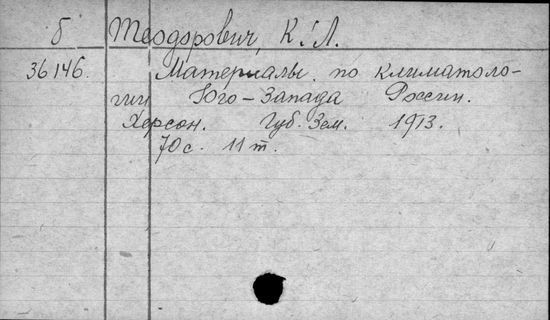 б Теодорович, К. Л.
36146. Материалы по климатоло-
гии Юго-Запада России.
Херсон. Губ. Зем. 1913.
70 с. 11 т.